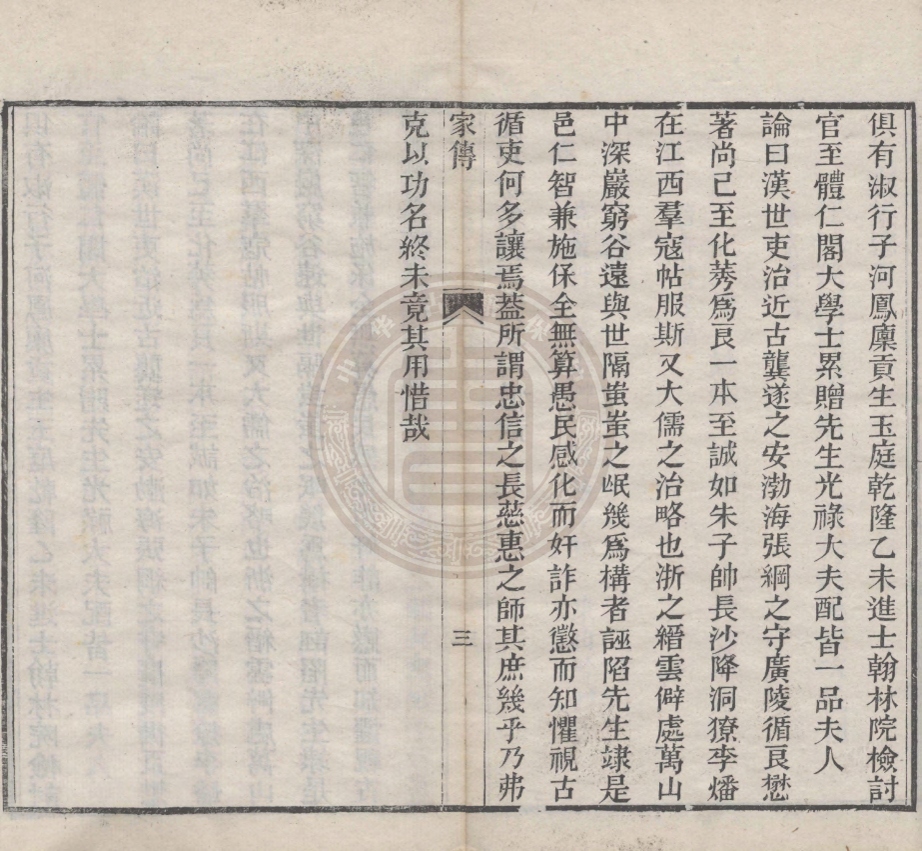 俱有淑行子河鳳廩貢生玉庭乾隆乙未進士翰林院檢討
官至體仁閣大學士累贈先生光祿大夫配皆一品夫人
論曰漢世吏治近古龔遂之安渤海張綱之守廣陵循良懋
著尚已至化莠爲良一本至誠如朱子帥長沙降洞獠李燔
在江西羣寇帖服斯又大儒之治略也浙之縉雲僻處萬山
中深巖窮谷遠與世隔蚩蚩之氓幾爲構者誣陷先生竦是
邑仁智兼施保全無算愚民感化而奸詐亦懲而知懼視古
循吏何多讓焉葢所謂忠信之長慈惠之師其庶幾乎乃弗
家傳
三
克以功名終未竟其用惜哉